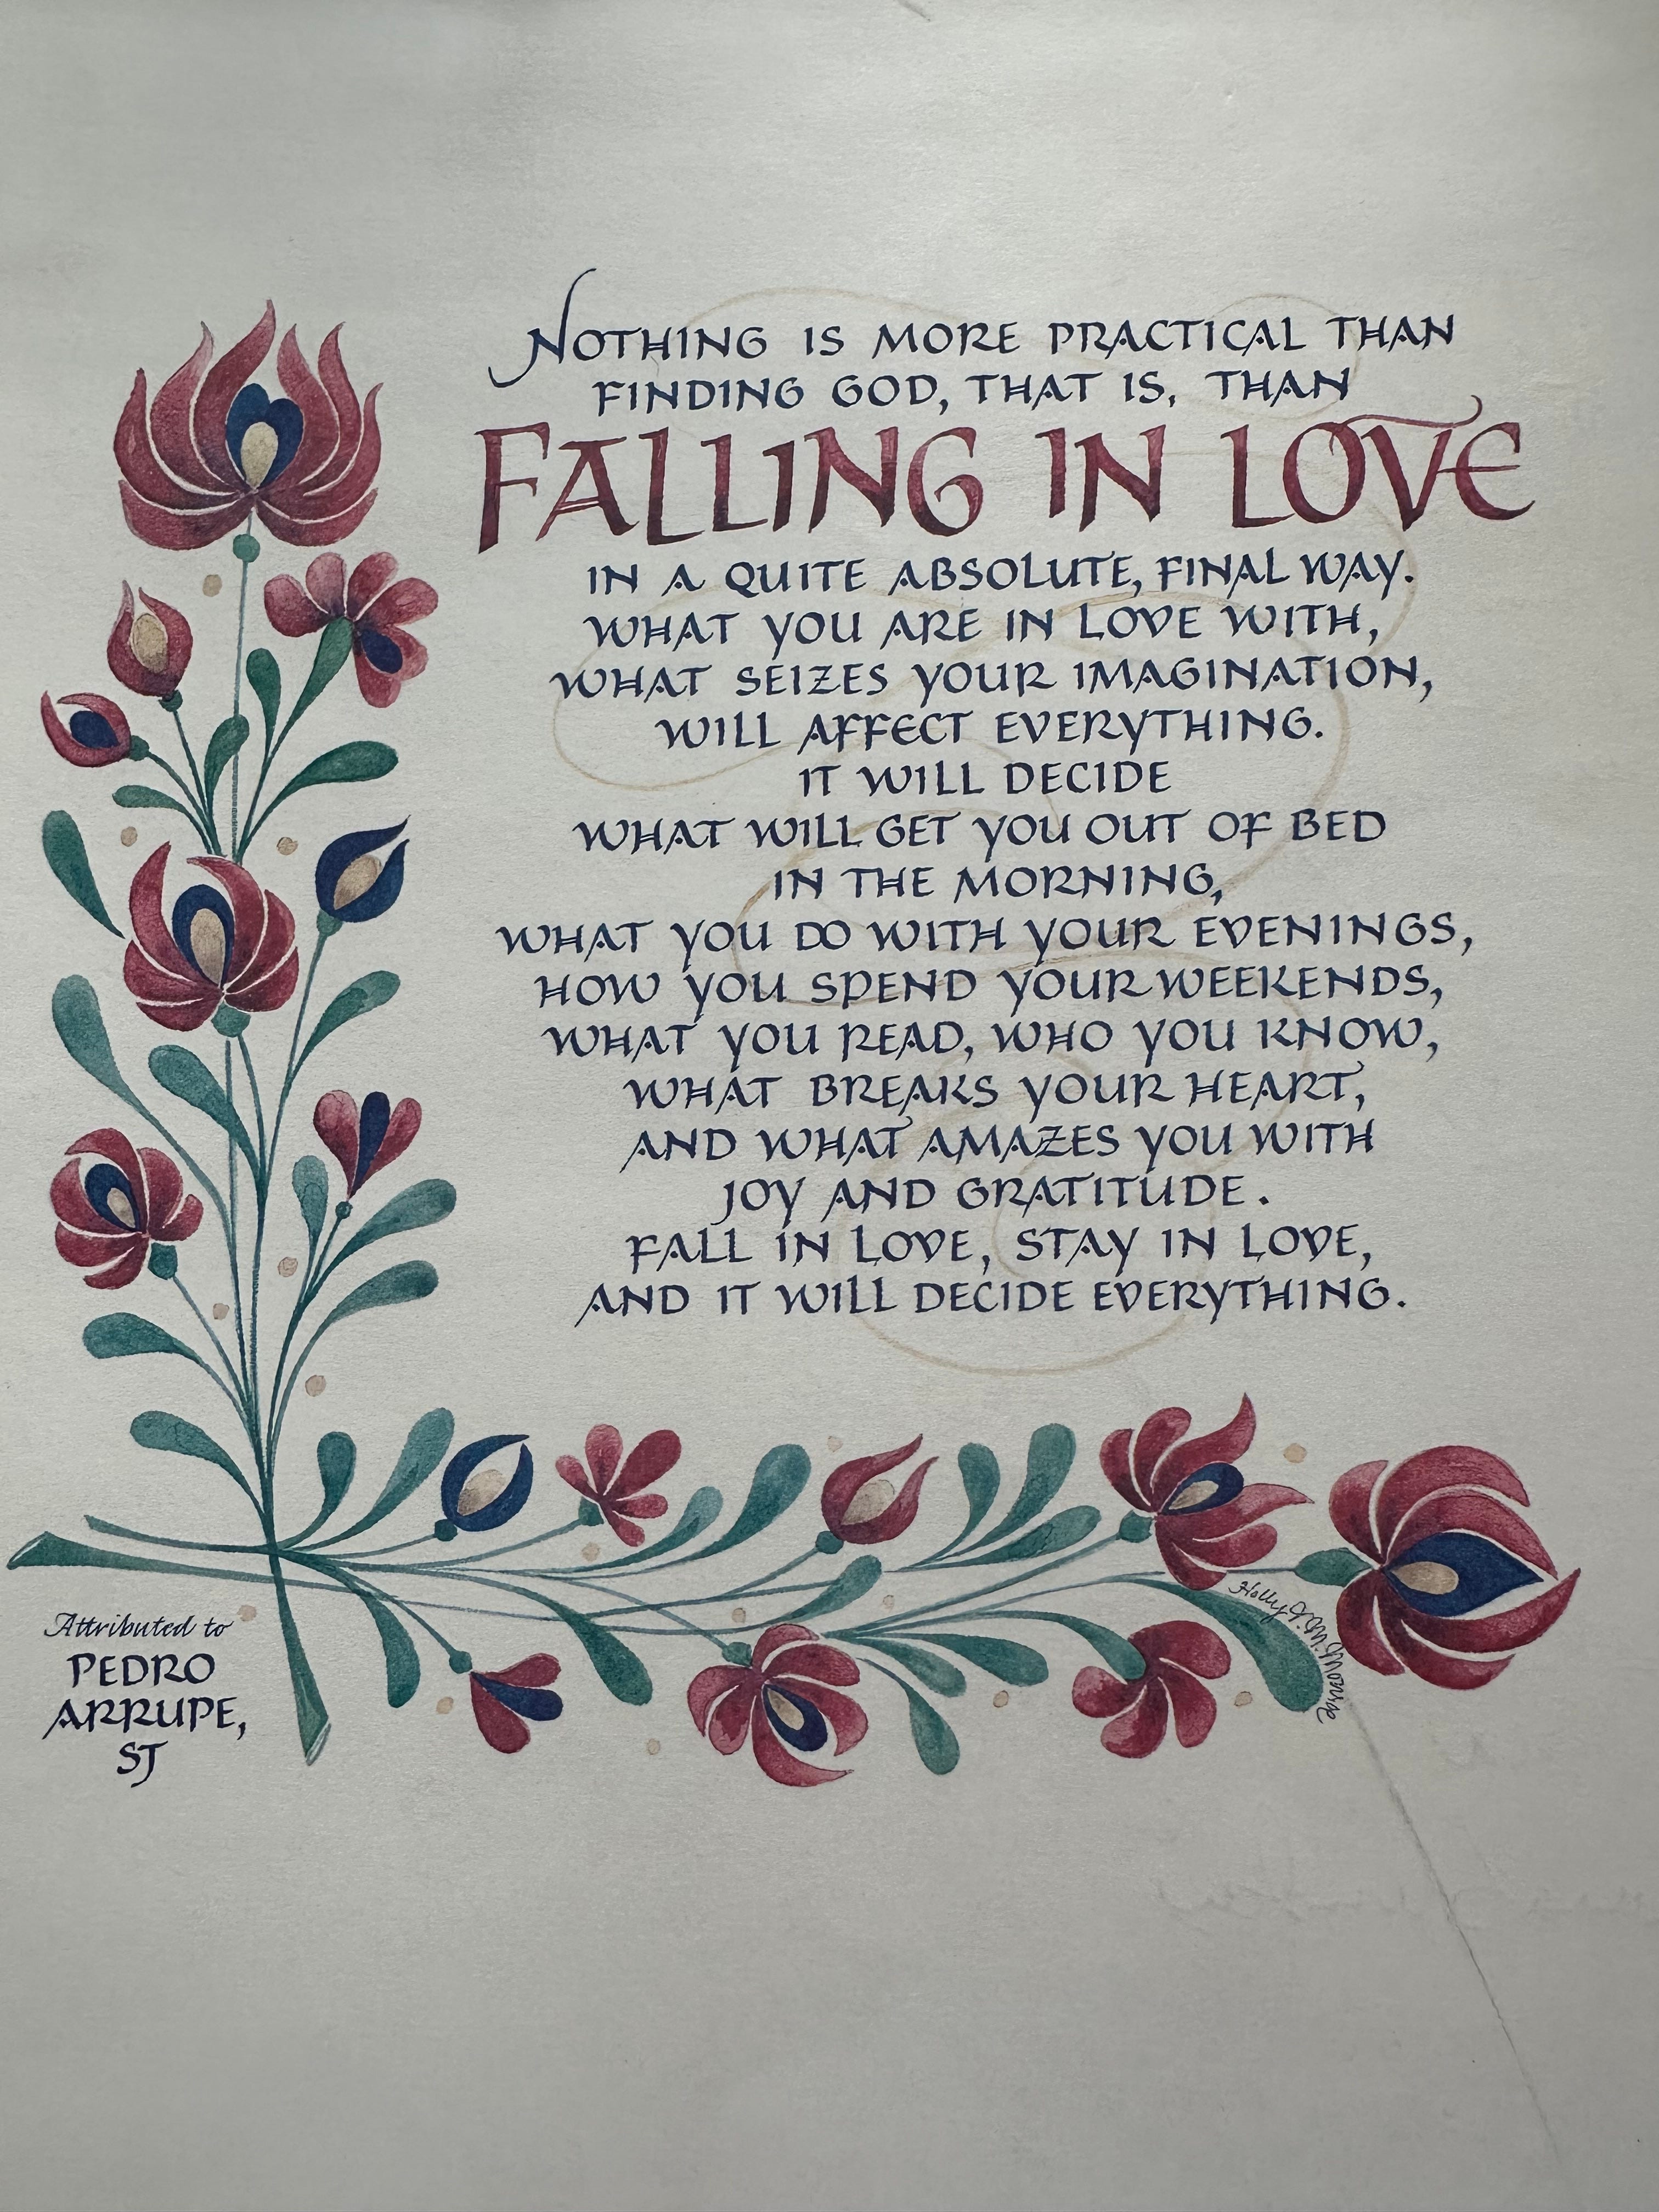 NOTHING IS MORE PRACTICAL THAN
FINDING GOD, THAT IS, THAN
FALLING IN LOVE
IN A QUITE ABSOLUTE, FINAL WAY.
WHAT YOU ARE IN LOVE WITH,
WHAT SEIZES YOUR IMAGINATION,
WILL AFFECT EVERYTHING.
IT WILL DECIDE
WHAT WILL GET YOU OUT OF BED
IN THE MORNING,
WHAT YOU DO WITH YOUR EVENINGS,
HOW YOU SPEND YOUR WEEKENDS,
WHAT YOU READ, WHO YOU KNOW,
WHAT BREAKS YOUR HEART,
AND WHAT AMAZES YOU WITH
JOY AND GRATITUDE.
FALL IN LOVE, STAY IN LOVE,
AND IT WILL DECIDE EVERYTHING.
Attributed to
PEDRO
ARRUPE,
SJ
Holly